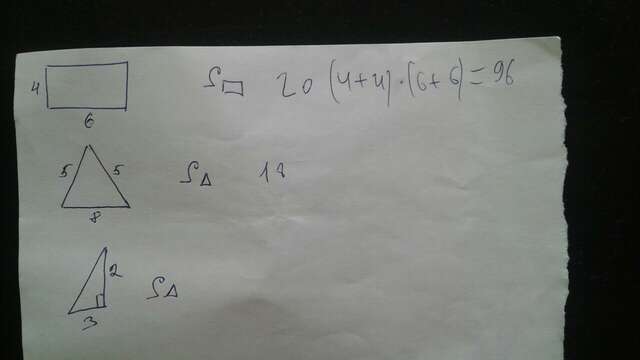 4
6
S▭ 20 (4+4)·(6+6)=96
5 5
8
S△ 18
2
3
S△